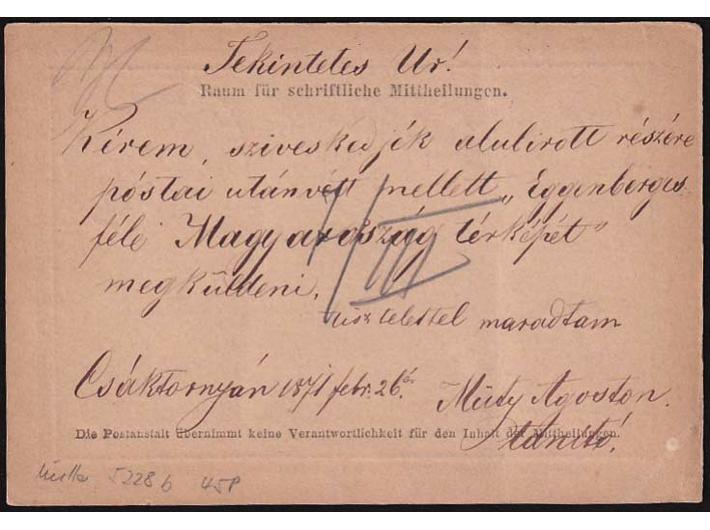 Tekintetes Ur!
Raum für schriftliche Mittheilungen.
Kérem, sziveskedjék alulirott részére
póstai utánvétt mellett „Eggenberger
féle Magyarország térképét"
megküldeni,
tisztelettel maradtam
Csáktornyán 1871 febr. 26án
Ágoston.
Die Postanstalt übernimmt keine Verantwortlichkeit für den Inhalt der Mittheilungen.
tanító.
5228 b 45P